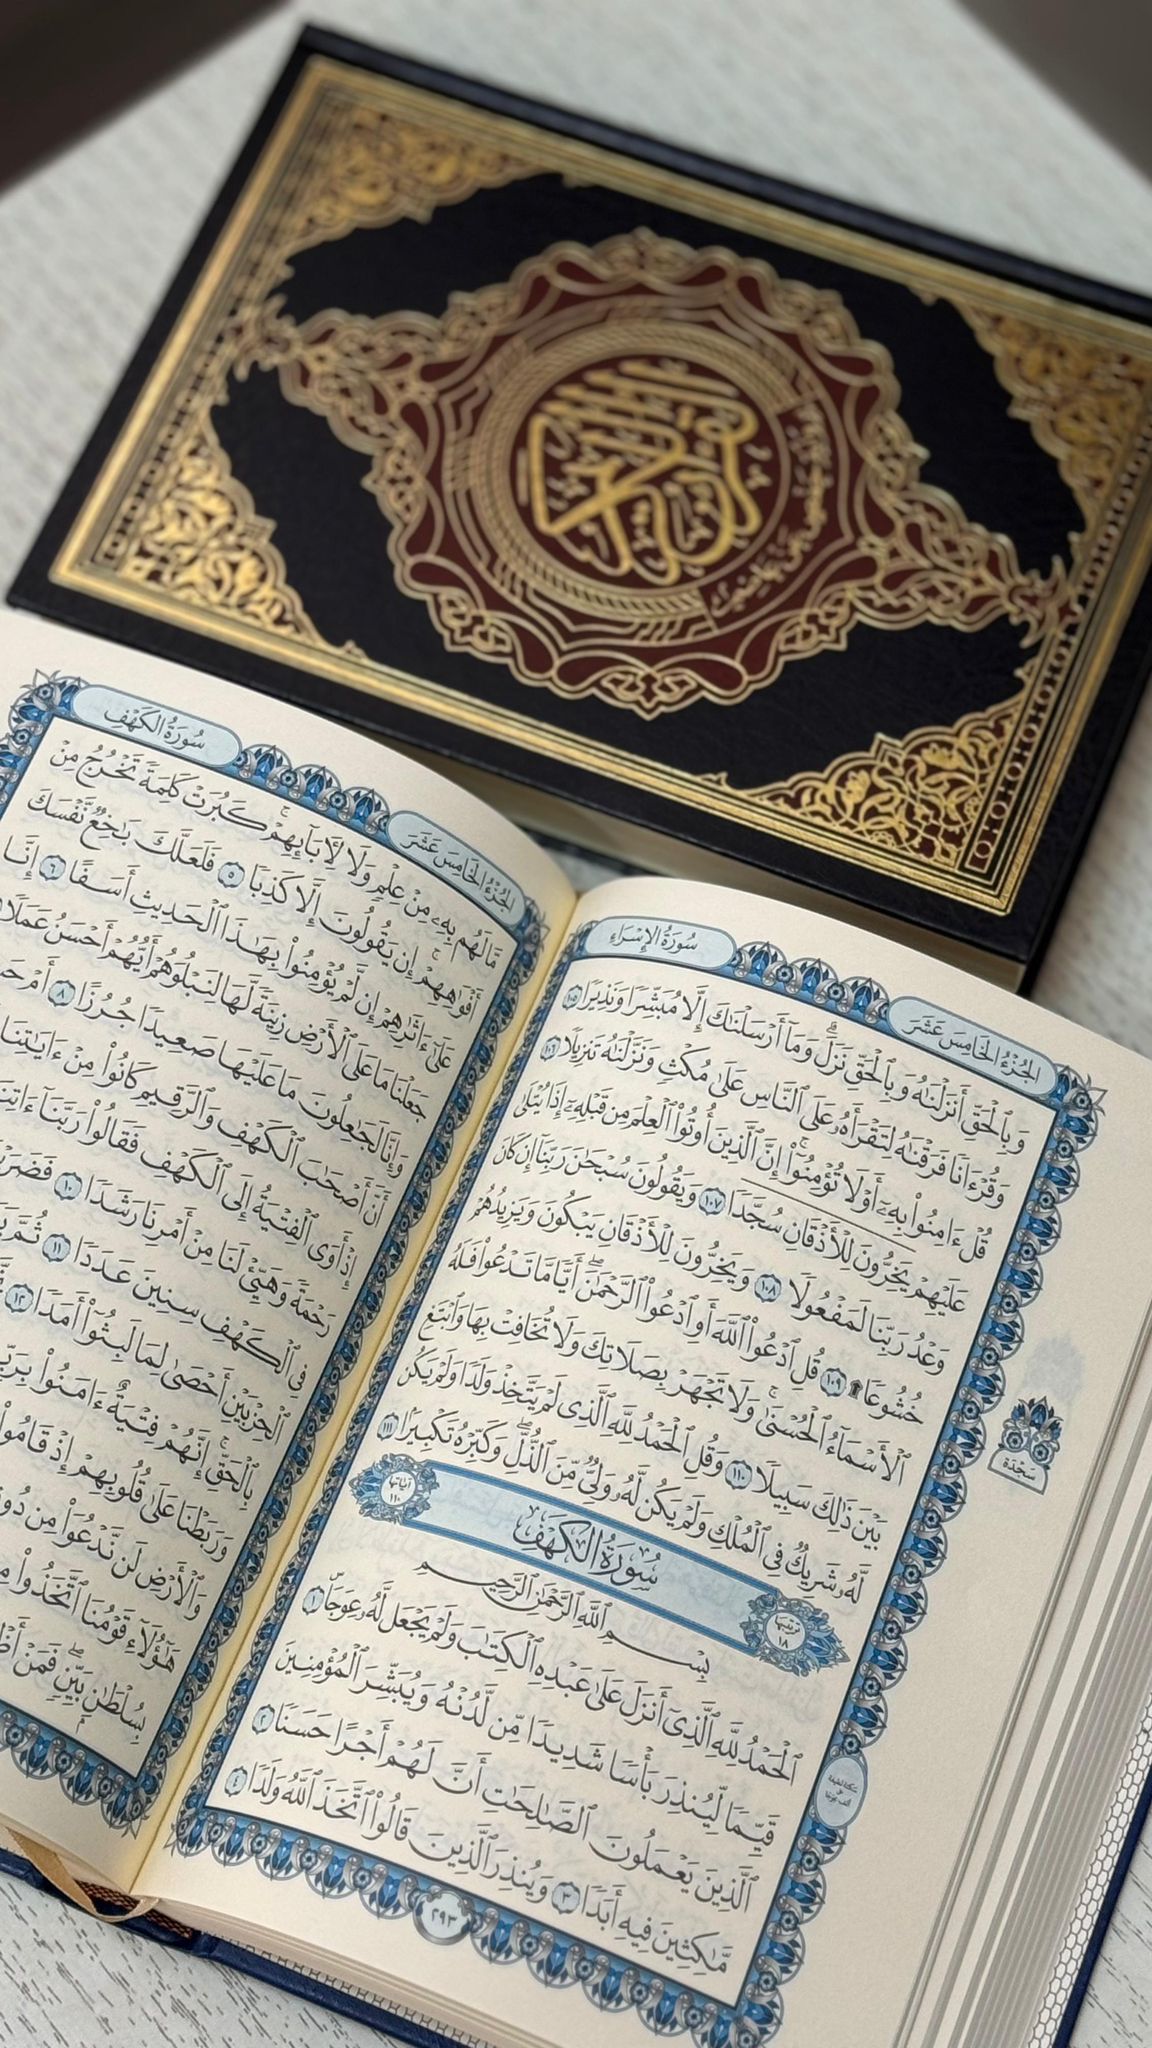 القرآن الكريم
سُورَةُ الإِسْرَاءِ
الجُزْءُ الخَامِسَ عَشَرَ
وَبِٱلْحَقِّ أَنزَلْنَٰهُ وَبِٱلْحَقِّ نَزَلَۗ وَمَآ أَرْسَلْنَٰكَ إِلَّا مُبَشِّرًا وَنَذِيرًا ١٠٥
وَقُرْءَانًا فَرَقْنَٰهُ لِتَقْرَأَهُۥ عَلَى ٱلنَّاسِ عَلَىٰ مُكْثٍ وَنَزَّلْنَٰهُ تَنزِيلًا ١٠٦
قُلْ ءَامِنُوا۟ بِهِۦٓ أَوْ لَا تُؤْمِنُوٓا۟ۚ إِنَّ ٱلَّذِينَ أُوتُوا۟ ٱلْعِلْمَ مِن قَبْلِهِۦٓ إِذَا يُتْلَىٰ
عَلَيْهِمْ يَخِرُّونَ لِلْأَذْقَانِ سُجَّدًا ١٠٧ وَيَقُولُونَ سُبْحَٰنَ رَبِّنَآ إِن كَانَ
وَعْدُ رَبِّنَا لَمَفْعُولًا ١٠٨ وَيَخِرُّونَ لِلْأَذْقَانِ يَبْكُونَ وَيَزِيدُهُمْ
خُشُوعًا ۩ ١٠٩ قُلِ ٱدْعُوا۟ ٱللَّهَ أَوِ ٱدْعُوا۟ ٱلرَّحْمَٰنَۖ أَيًّا مَّا تَدْعُوا۟ فَلَهُ
ٱلْأَسْمَآءُ ٱلْحُسْنَىٰۚ وَلَا تَجْهَرْ بِصَلَاتِكَ وَلَا تُخَافِتْ بِهَا وَٱبْتَغِ
بَيْنَ ذَٰلِكَ سَبِيلًا ١١٠ وَقُلِ ٱلْحَمْدُ لِلَّهِ ٱلَّذِى لَمْ يَتَّخِذْ وَلَدًا وَلَمْ يَكُن
لَّهُۥ شَرِيكٌ فِى ٱلْمُلْكِ وَلَمْ يَكُن لَّهُۥ وَلِىٌّ مِّنَ ٱلذُّلِّۖ وَكَبِّرْهُ تَكْبِيرًۢا ١١١
سَجْدَة
ترتيبها ١٨
سُورَةُ الكَهْفِ
آياتها ١١٠
بِسْمِ ٱللَّهِ ٱلرَّحْمَٰنِ ٱلرَّحِيمِ
ٱلْحَمْدُ لِلَّهِ ٱلَّذِىٓ أَنزَلَ عَلَىٰ عَبْدِهِ ٱلْكِتَٰبَ وَلَمْ يَجْعَل لَّهُۥ عِوَجَاۜ ١
قَيِّمًا لِّيُنذِرَ بَأْسًا شَدِيدًا مِّن لَّدُنْهُ وَيُبَشِّرَ ٱلْمُؤْمِنِينَ
ٱلَّذِينَ يَعْمَلُونَ ٱلصَّٰلِحَٰتِ أَنَّ لَهُمْ أَجْرًا حَسَنًا ٢
مَّٰكِثِينَ فِيهِ أَبَدًا ٣ وَيُنذِرَ ٱلَّذِينَ قَالُوا۟ ٱتَّخَذَ ٱللَّهُ وَلَدًا ٤
٢٩٣
سُورَةُ الكَهْفِ
الجُزْءُ الخَامِسَ عَشَرَ
مَّا لَهُم بِهِۦ مِنْ عِلْمٍ وَلَا لِءَابَآئِهِمْۚ كَبُرَتْ كَلِمَةً تَخْرُجُ مِنْ
أَفْوَٰهِهِمْۚ إِن يَقُولُونَ إِلَّا كَذِبًا ٥ فَلَعَلَّكَ بَٰخِعٌ نَّفْسَكَ
عَلَىٰٓ ءَاثَٰرِهِمْ إِن لَّمْ يُؤْمِنُوا۟ بِهَٰذَا ٱلْحَدِيثِ أَسَفًا ٦ إِنَّا
جَعَلْنَا مَا عَلَى ٱلْأَرْضِ زِينَةً لَّهَا لِنَبْلُوَهُمْ أَيُّهُمْ أَحْسَنُ عَمَلًا
وَإِنَّا لَجَٰعِلُونَ مَا عَلَيْهَا صَعِيدًا جُرُزًا ٨ أَمْ
أَنَّ أَصْحَٰبَ ٱلْكَهْفِ وَٱلرَّقِيمِ كَانُوا۟ مِنْ ءَايَٰتِنَا
إِذْ أَوَى ٱلْفِتْيَةُ إِلَى ٱلْكَهْفِ فَقَالُوا۟ رَبَّنَآ ءَاتِنَا
رَحْمَةً وَهَيِّئْ لَنَا مِنْ أَمْرِنَا رَشَدًا ١٠
فِى ٱلْكَهْفِ سِنِينَ عَدَدًا ١١ ثُمَّ
ٱلْحِزْبَيْنِ أَحْصَىٰ لِمَا لَبِثُوٓا۟ أَمَدًا ١٢
بِٱلْحَقِّۚ إِنَّهُمْ فِتْيَةٌ ءَامَنُوا۟
وَرَبَطْنَا عَلَىٰ قُلُوبِهِمْ إِذْ قَامُوا۟
وَٱلْأَرْضِ لَن نَّدْعُوَا۟ مِن
هَٰٓؤُلَآءِ قَوْمُنَا ٱتَّخَذُوا۟
بِسُلْطَٰنٍۭ بَيِّنٍۖ فَمَنْ